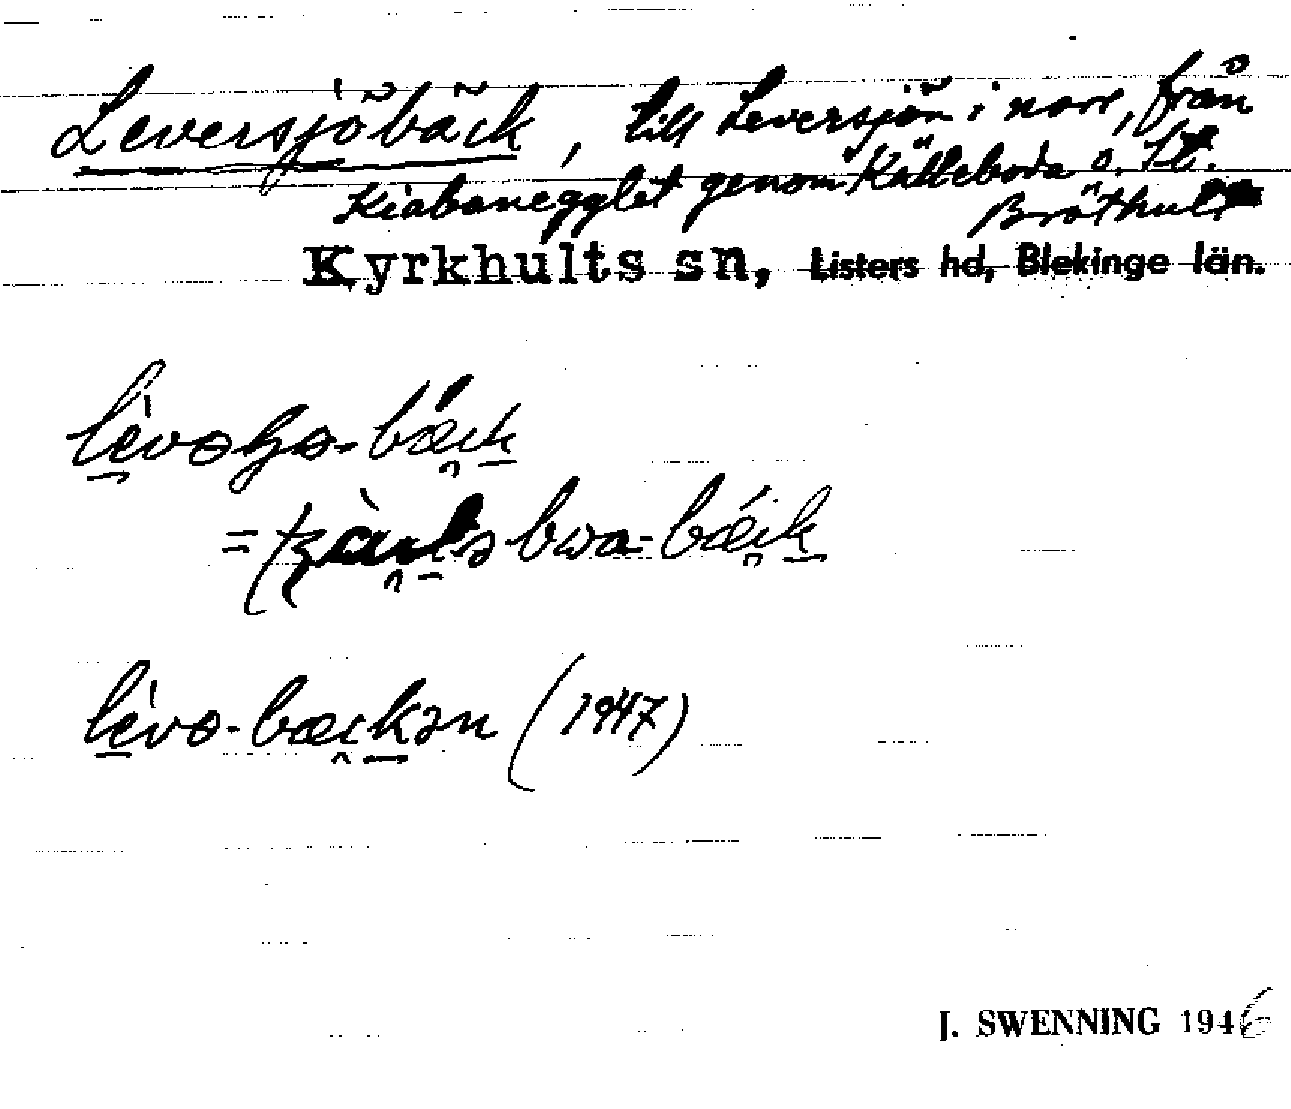 Leversjöbäck, till Leversjön i norr, från
Kiabanegglet genom Källeboda o. St.
Bröthult
Kyrkhults sn, Listers hd, Blekinge län.
bæck
bwa-bǽik
lèvə-bæikən (1947)
J. SWENNING 1946